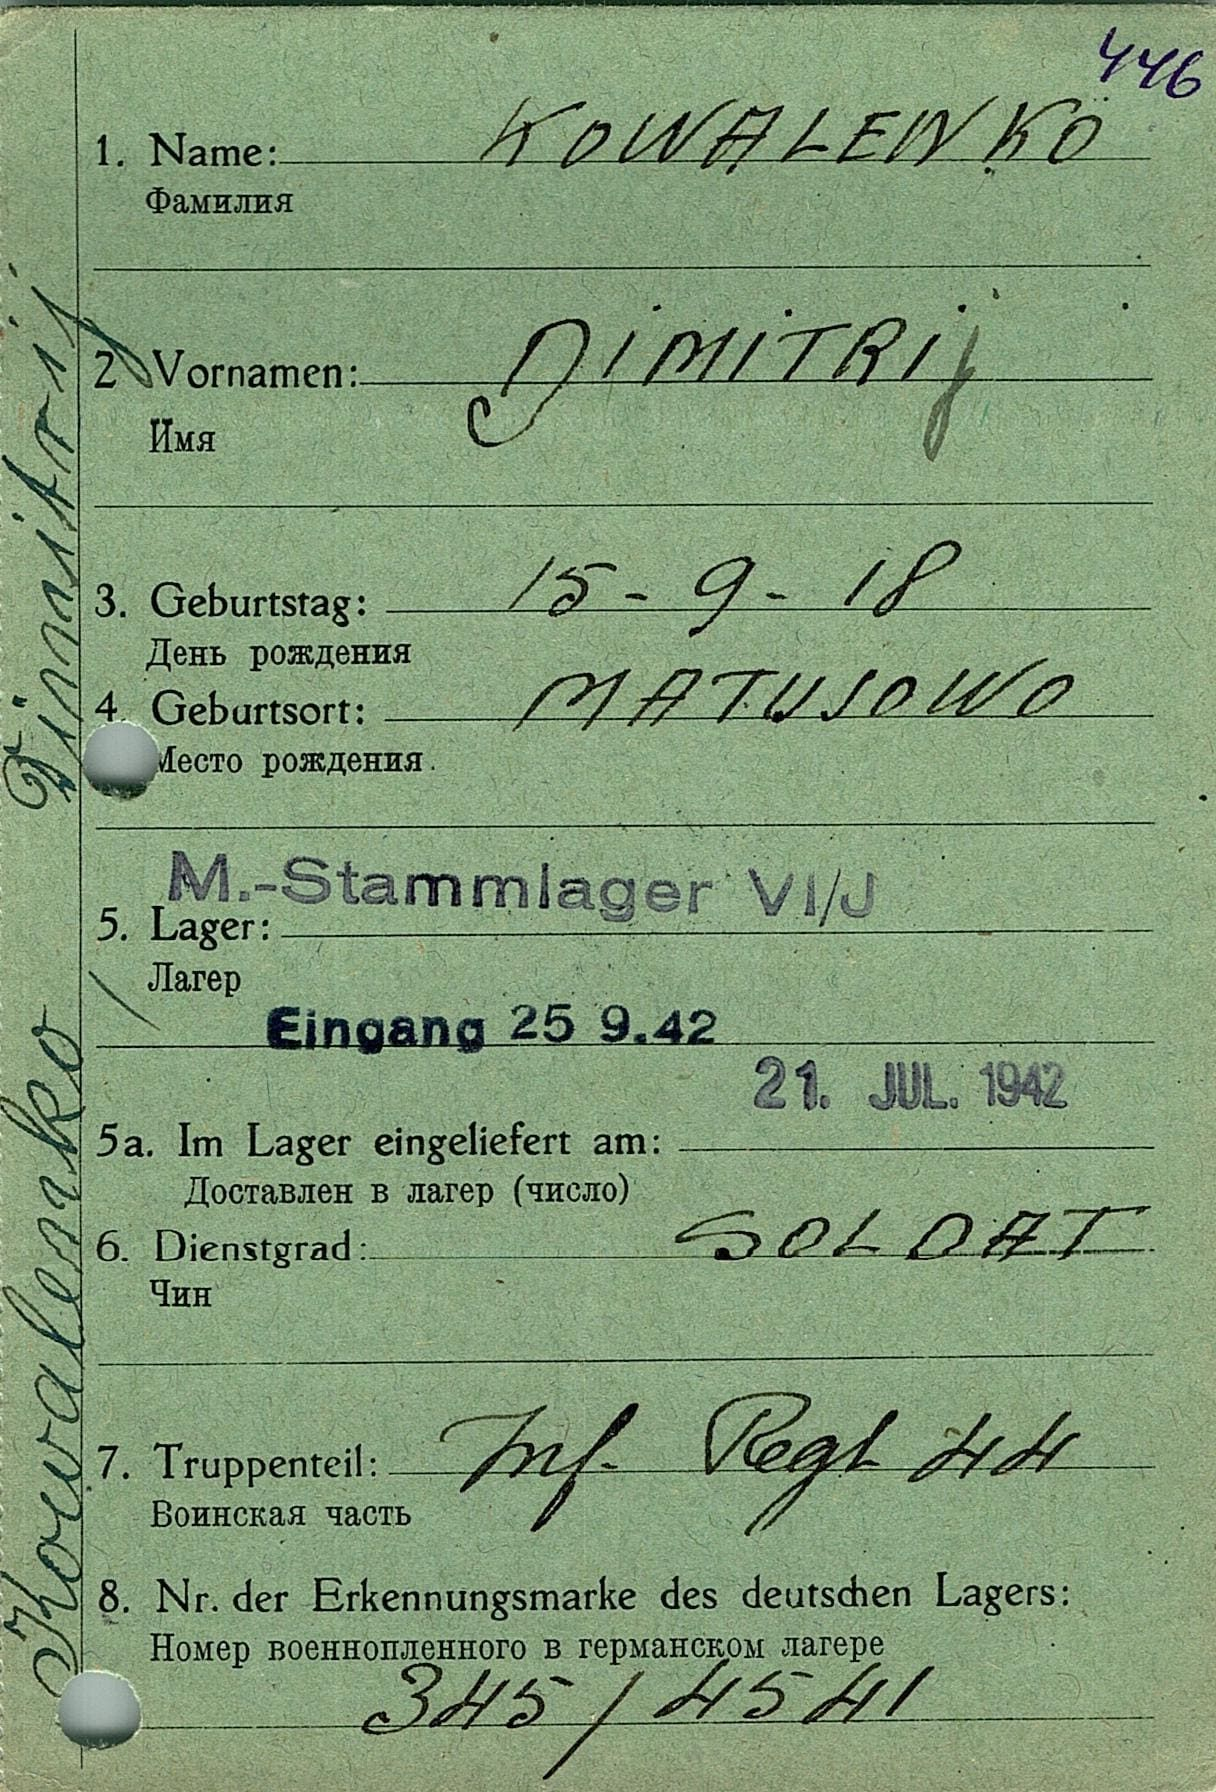 446
1. Name: KOWALENKO
Фамилия
2 Vornamen: DIMITRIj
Имя
3. Geburtstag: 15 - 9 - 18
День рождения
4. Geburtsort: MATUSOWO
Место рождения.
M.-Stammlager VI/J
5. Lager:
Лагер
Eingang 25 9.42
21. JUL. 1942
5a. Im Lager eingeliefert am:
Доставлен в лагер (число)
6. Dienstgrad: SOLDAT
Чин
7. Truppenteil: Inf. Regt 44
Воинская часть
8. Nr. der Erkennungsmarke des deutschen Lagers:
Номер военнопленного в германском лагере
345/4541
Kowalenko Dimitrij